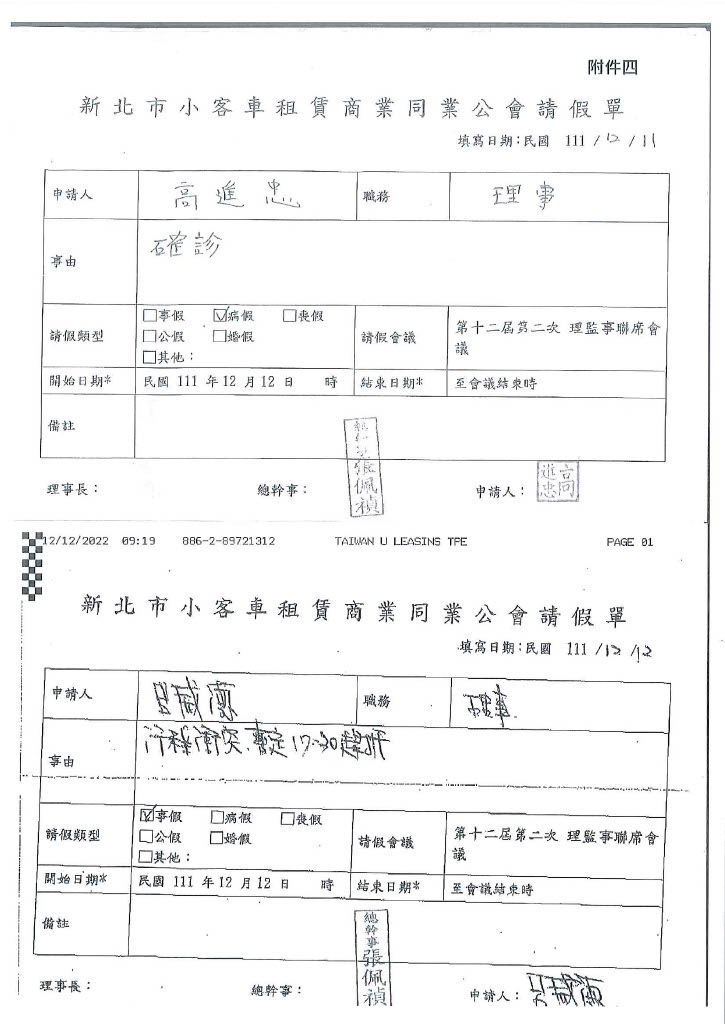 附件四
新北市小客車租賃商業同業公會請假單
填寫日期:民國 111/12/11
申請人 高進忠 職務 理事
事由 確診
請假類型 □事假 ☑病假 □喪假
□公假 □婚假
□其他：
請假會議 第十二屆第二次 理監事聯席會議
開始日期* 民國 111 年 12 月 12 日 時 結束日期* 至會議結束時
備註
理事長： 總幹事： 總幹事張佩禎 申請人： 高進忠
12/12/2022 09:19 886-2-89721312 TAIWAN U LEASING TPE PAGE 01
新北市小客車租賃商業同業公會請假單
填寫日期:民國 111/12/12
申請人 呂威 職務 理事
事由 行程衝突,暫定17:30
請假類型 ☑事假 □病假 □喪假
□公假 □婚假
□其他：
請假會議 第十二屆第二次 理監事聯席會議
開始日期* 民國 111 年 12 月 12 日 時 結束日期* 至會議結束時
備註
理事長： 總幹事： 總幹事張佩禎 申請人： 呂威